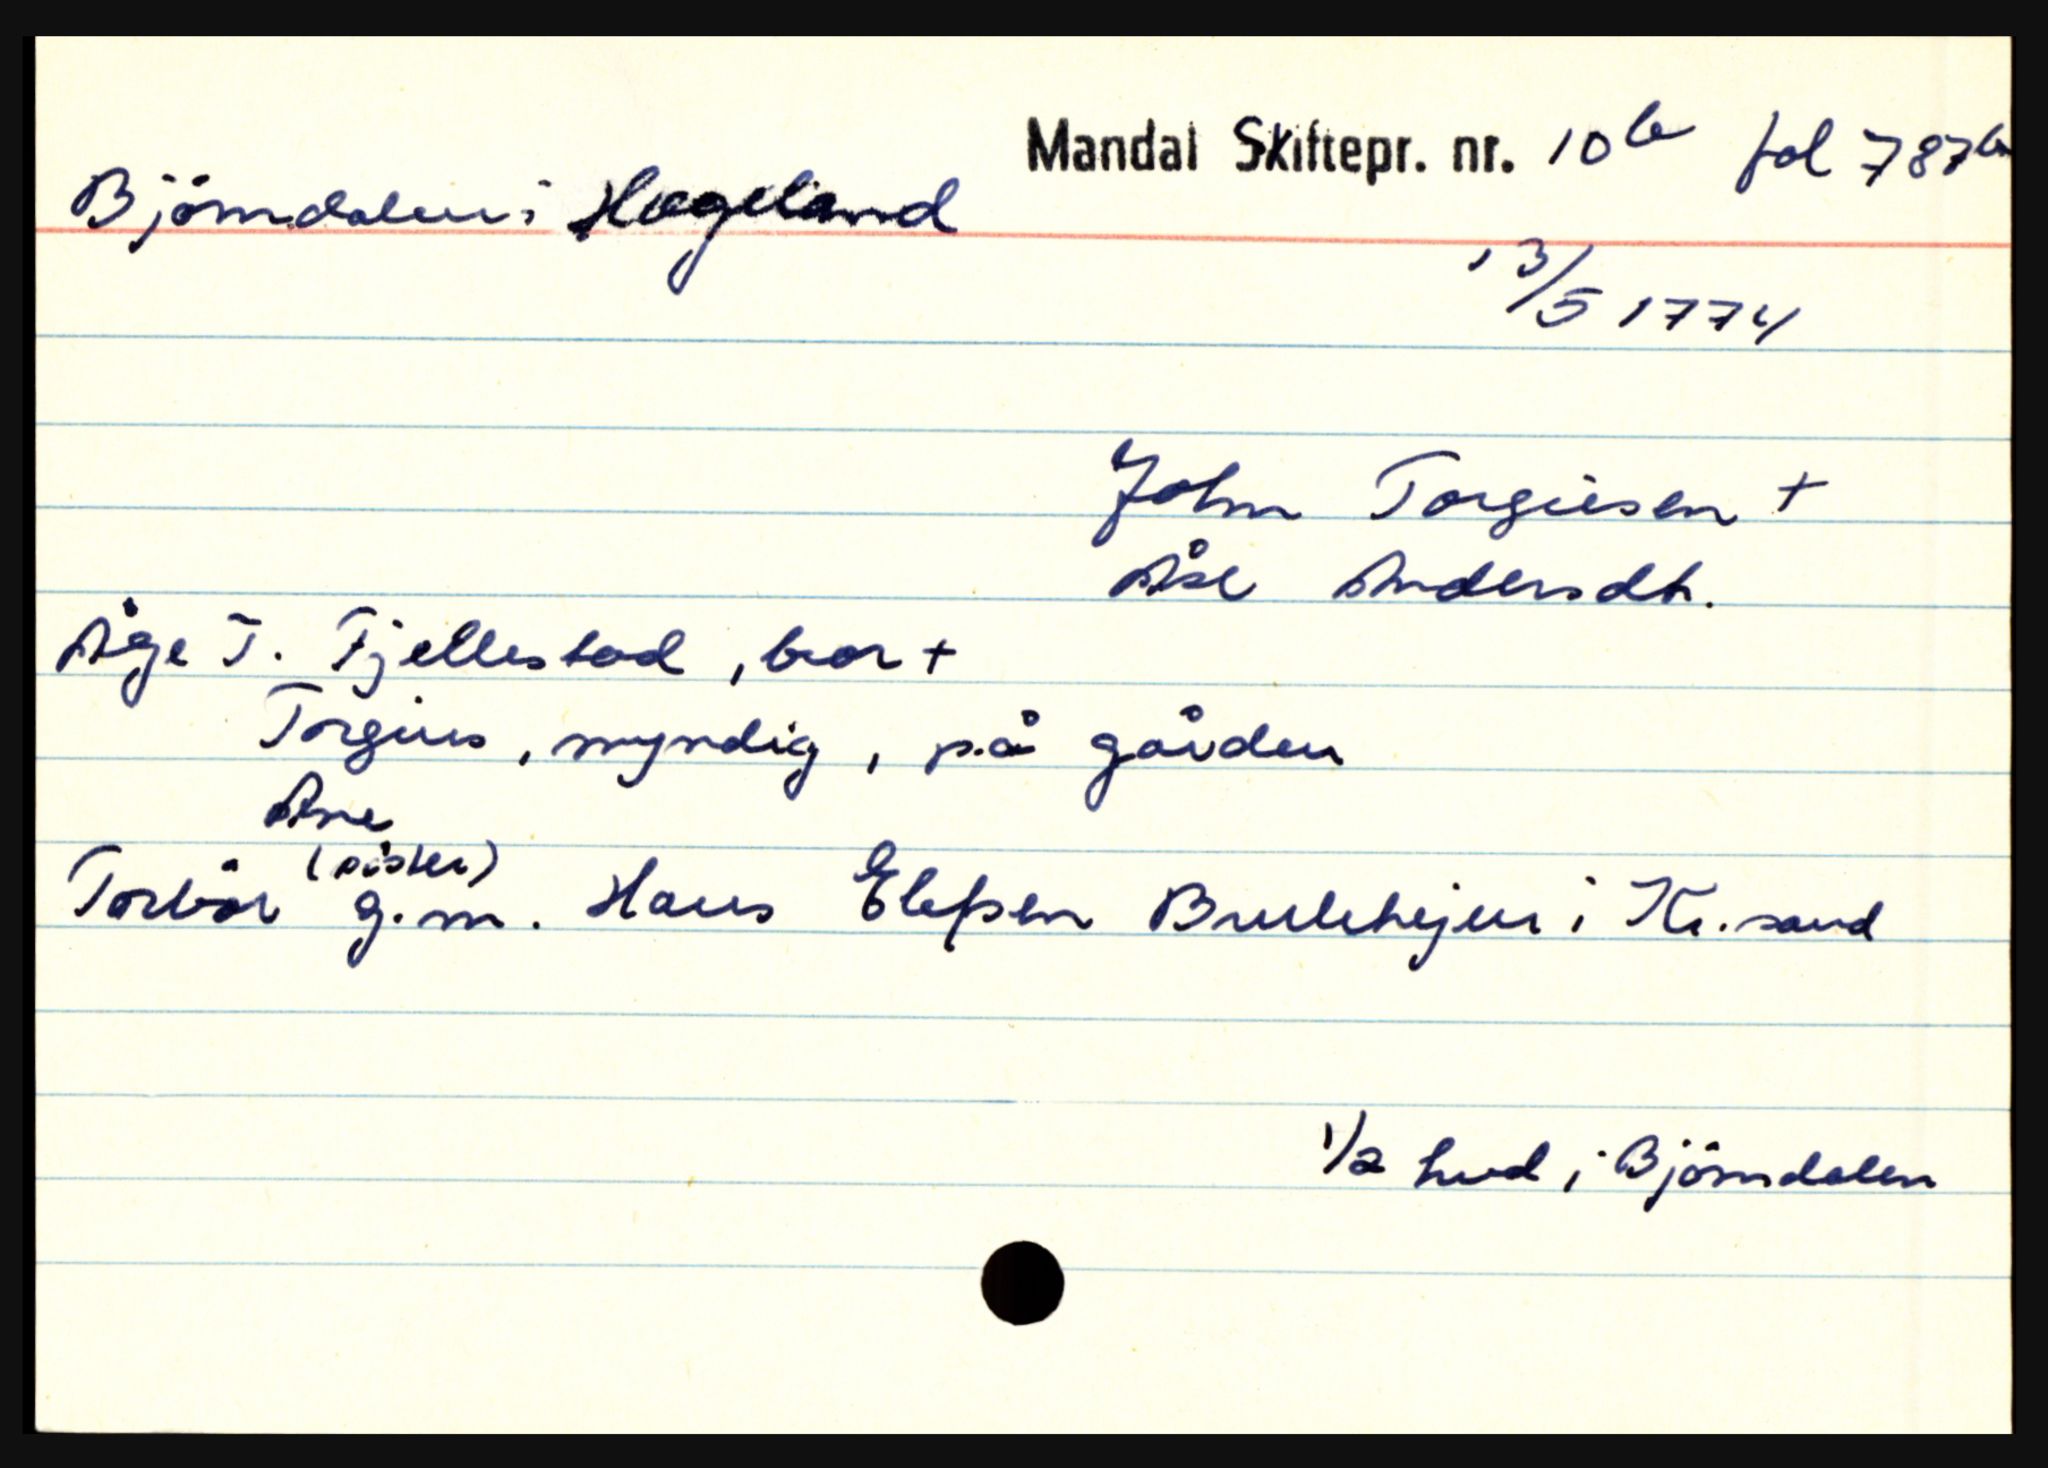 Mandal Skiftepr. nr. 10b fol 787b
Björndalen i Hægeland
13/5 1774
John Torgiusen +
Åse Andersdt.
Åge T. Fjellestad, bror +
Torgius, myndig, på gården
Ane
(söster)
Torbör g.m. Hans Elefsen i Kr.sand
1/2 hud i Björndalen